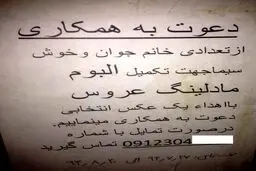 دعوت به همکاری
از تعدادی خانم جوان و خوش
سیما جهت تکمیل آلبوم
مادلینگ عروس
با اهداء یک عکس انتخابی
دعوت به همکاری مینماییم.
در صورت تمایل با شماره
0912304 تماس گیرید